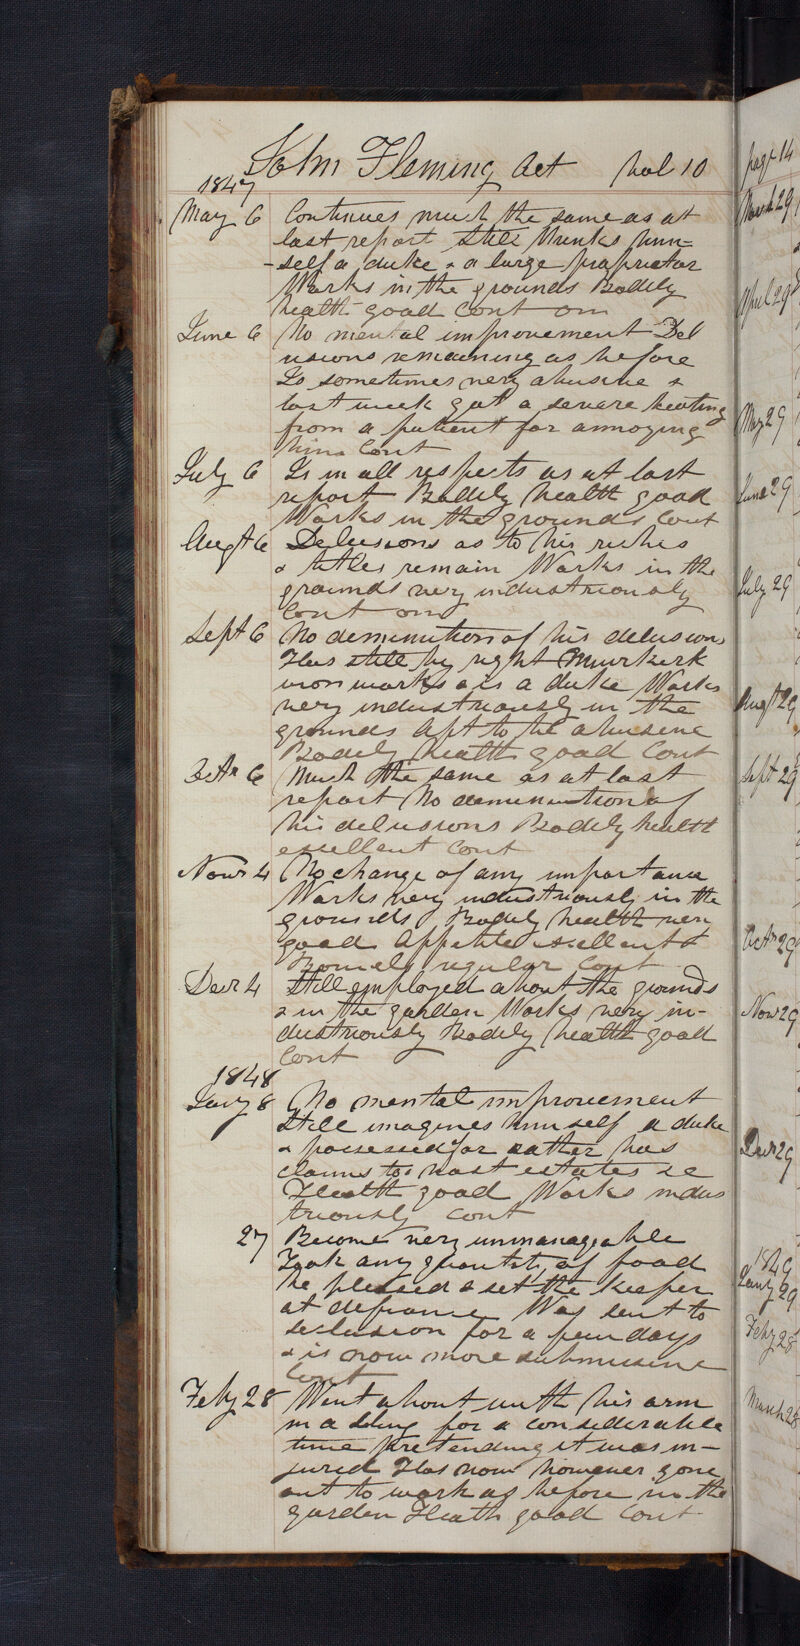 John Fleming Aet Vol 10
1847
May 6 Continues much the same as at
last report Still thinks him-
-self a duke & a large proprietor
Works in the grounds Bodily
health good Cont om
June 6 No mental improvement Del
usions remaining as before
Is sometimes very abusive &
last week got a severe beating
from a patient for annoying
him Cont
July 6 Is in all respects as at last
report Bodily health good
Works in the grounds Cont
Augt 6 Delusions as to his riches
& titles remain Works in the
grounds very industriously
Cont om
Sept 6 No deminution of his delusions
Has still by right Muirkirk
iron works & is a duke Works
very industriously in the
grounds Apt to be abusive
Bodily health good Cont
Octr 6 Much the same as at last
report No deminution of
his delusions Bodily health
excellent Cont
Novr 4 No change of any importance
Works very industriously in the
grounds Bodily health very
good Appetite excellent &
Bowels regular Cont
Decr 4 Still employed about the grounds
& in the garden Works very in-
dustriously Bodily health good
Cont
1848
Jany 8 No mental improvement
Still imagines himself a duke
& possessed of or rather has
claims to vast estates &c
Health good Works indus
triously Cont
27 Become very unmanageable
Took any quantity of food
he pleased & set the keeper
at defiance Was sent to
seclusion for a few days
& is now more submissive
Cont
Feby 28 Went about with his arm
in a sling for a considerable
time pretending it was in-
jured Has now however gone
out to work as before in the
garden Health good Cont
page 14
March 29
April 29
May 29
June 29
July 29
Augt 29
Sept 29
Octr 29
Novr 29
Decr 29
1849
Jany 29
Feby 28
March 28